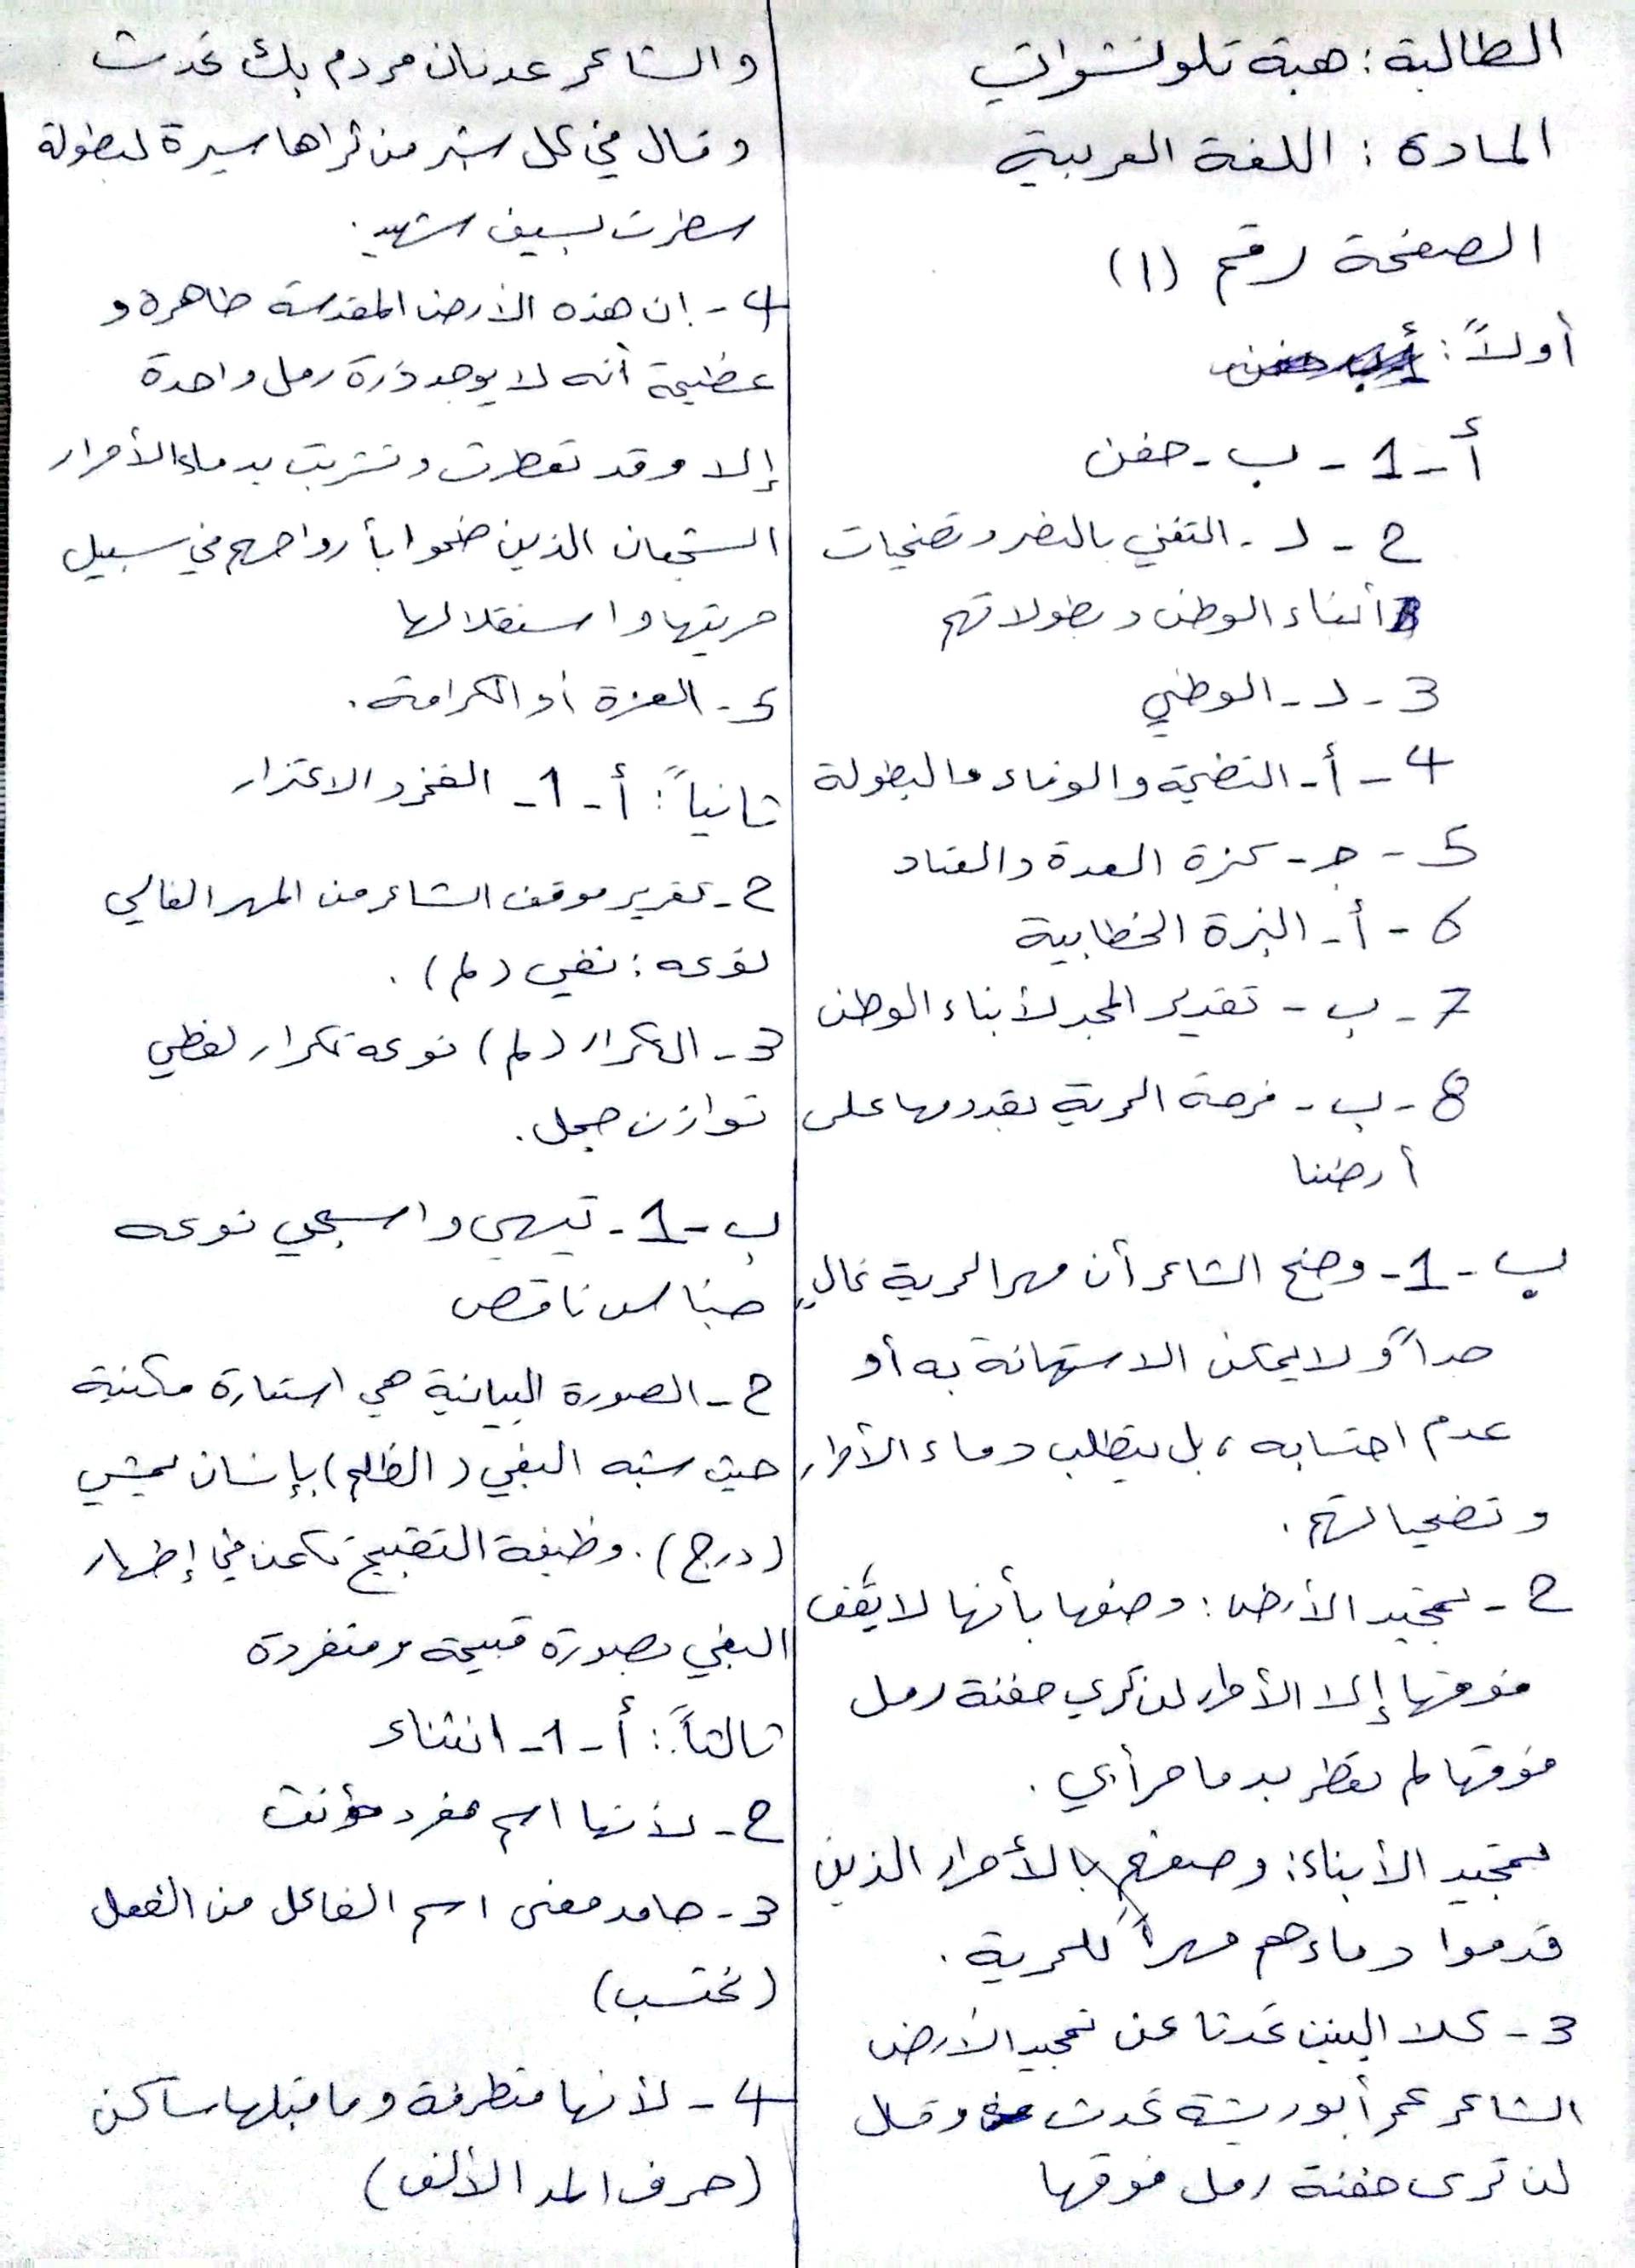 الطالبة : هبة تلو نشواتي
المادة : اللغة العربية
الصفحة رقم (1)
أولاً :
أ - 1 - ب - حفن
2 - د - التغني بالنصر وتضحيات
أبناء الوطن وبطولاتهم
3 - د - الوطني
4 - أ - التضحية والوفاء والبطولة
5 - جـ - كثرة العدة والعتاد
6 - أ - النبرة الخطابية
7 - ب - تقدير المجد لأبناء الوطن
8 - ب - فرحة الحرية بقدومها على
أرضنا
ب - 1 - وضح الشاعر أن مهر الحرية غالٍ
جداً و لا يمكن الاستهانة به أو
عدم احتسابه ، بل يتطلب دماء الأحرار
وتضحياتهم .
2 - تمجيد الأرض : وصفها بأنها لا يقف
فوقها إلا الأحرار لن تري حفنة رمل
فوقها لم تعطر بدما حر أبي .
تمجيد الأبناء : وصفهم بالأحرار الذين
قدموا دماءهم مهراً للحرية .
3 - كلا البيتين تحدثا عن تمجيد الأرض
الشاعر عمر أبو ريشة تحدث وقال
لن ترى حفنة رمل فوقها
والشاعر عدنان مردم بك تحدث
وقال في كل شبر من ثراها سيرة لبطولة
سطرت بسيف شهيد .
4 - إن هذه الأرض المقدسة طاهرة و
عظيمة أنه لا يوجد ذرة رمل واحدة
إلا وقد تعطرت وتشربت بدماء الأحرار
الشجعان الذين ضحوا بأرواحهم في سبيل
حريتها واستقلالها
5 - العزة أو الكرامة .
ثانياً : أ - 1 - الفخر والاعتزاز
2 - تقرير موقف الشاعر من المهر الغالي
نوعه : نفي (لم) .
3 - التكرار (لم) نوعه تكرار لفظي
توازن جمل .
ب - 1 - تيهي واسحبي نوعه
جناس ناقص
2 - الصورة البيانية هي استعارة مكنية
حيث شبه البغي (الظلم) بإنسان يمشي
(درج) . وظيفة التقبيح تكمن في إظهار
البغي بصورة قبيحة ومنفردة
ثالثاً : أ - 1 - انتشاء
2 - لأنها اسم مفرد مؤنث
3 - جامد معنى اسم الفاعل من الفعل
(تحتسب)
4 - لأنها متطرفة وما قبلها ساكن
(حرف المد الألف)